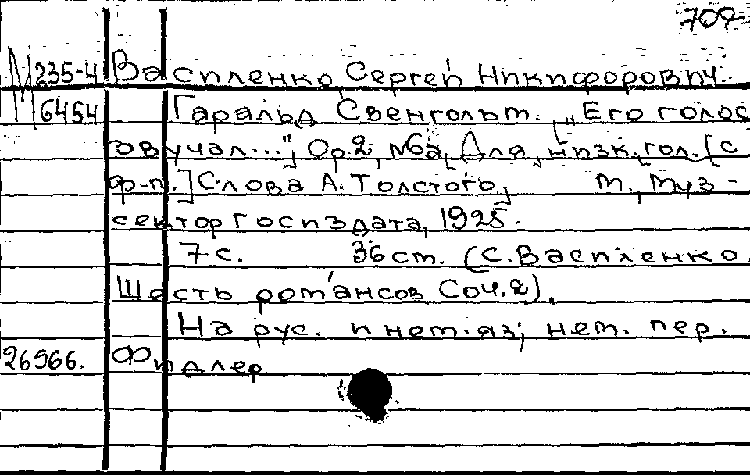 709
М 235-4 Василенко Сергей Никифорович.
М 6454 Гаральд Свенгольм. „Его голос
звучал...", Ор.2, №6а, [Для низк. гол. (с
ф-п.] Слова А. Толстого, М., Муз-
сектор Госиздата, 1925.
7 с. 36 ст. (С. Василенко.
Шесть романсов Соч. 2).
На рус. и нем. яз; нем. пер.
26966. Фидлер